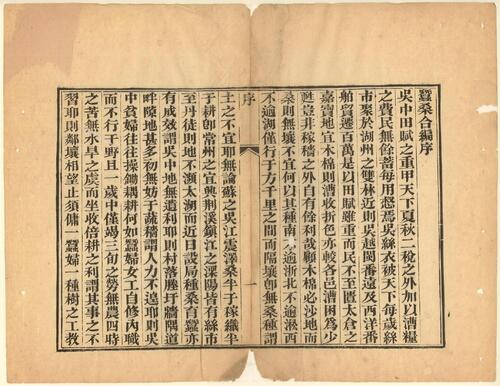 蠶桑合編序
吳中田賦之重甲天下夏秋二稅之外加以漕糧
之費民無餘蓄每用惄焉吳絲衣被天下每歲絲
市聚於湖州之雙林近則吳越閩番遠及西洋番
舶貿遷百萬是以田賦雖重而民不至匱太倉之
嘉寶地宜木棉則漕收折色亦較各邑漕困爲少
甦豈非稼穡之外自有餘利哉顧木棉必沙地而
桑則無壤不宜何以其種南不逾浙北不逾淞西
不逾湖僅行于方千里之間而隔壤卽無桑種謂
序
一
土之不宜耶無論蘇之吳江震澤桑半于稼織半
于耕卽常州之宜興荆溪鎭江之溧陽皆有絲市
至丹徒則地不瀕太湖而近日設局種桑育蠶亦
有成效謂吳中地無遺利耶則村落塍圩牆隅道
畔隙地甚多初無妨于蔬穡謂人力不遑耶則吳
中貧婦往往操鋤耦耕何如蠶婦女工自修內職
而不行于野且一歲中僅竭三旬之勞無農四時
之苦無水旱之虞而坐收倍耕之利謂其事之不
習耶則鄰壤相望止須傭一蠶婦一種樹之工敎